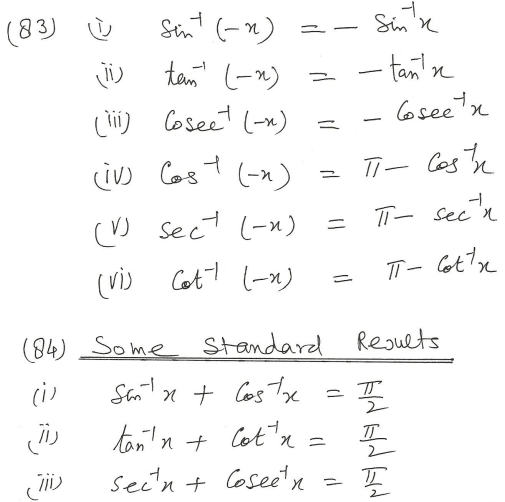 (83) (i) Sin⁻¹ (-x) = - Sin⁻¹x
(ii) tan⁻¹ (-x) = - tan⁻¹x
(iii) Cosec⁻¹ (-x) = - Cosec⁻¹x
(iv) Cos⁻¹ (-x) = π - Cos⁻¹x
(v) sec⁻¹ (-x) = π - sec⁻¹x
(vi) Cot⁻¹ (-x) = π - Cot⁻¹x
(84) Some Standard Results
(i) Sin⁻¹x + Cos⁻¹x = π/2
(ii) tan⁻¹x + Cot⁻¹x = π/2
(iii) sec⁻¹x + Cosec⁻¹x = π/2